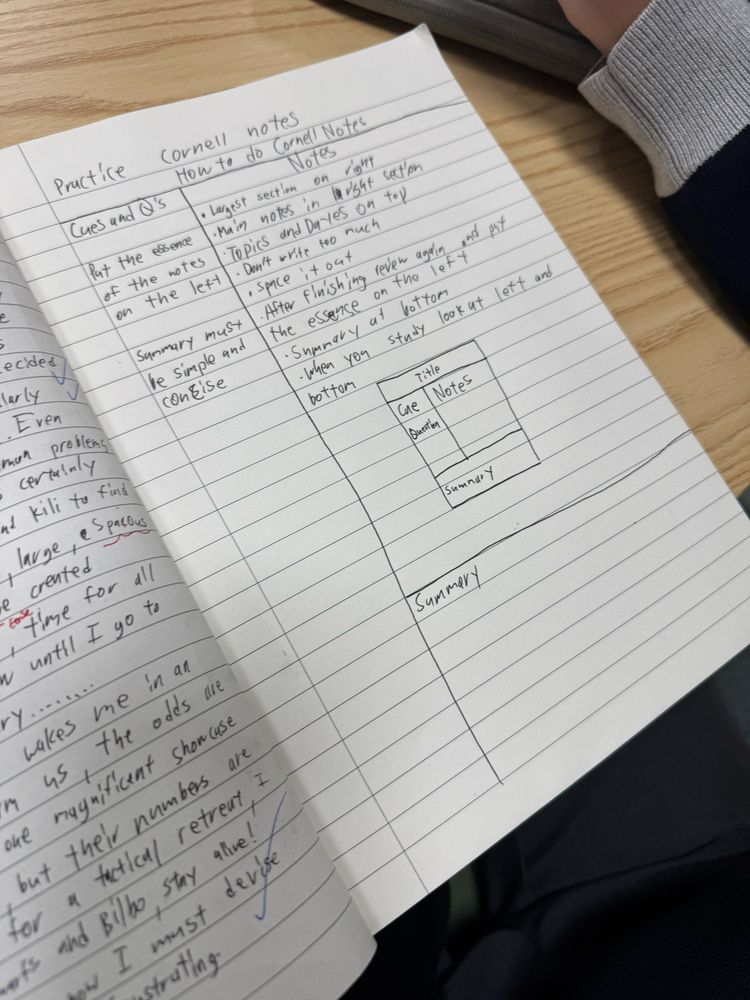 Practice cornell notes
How to do Cornell Notes
Cues and Q's
Put the essence
of the notes
on the left
Summary must
be simple and
concise
Notes
• Largest section on right
• Main notes in right section
• Topics and Dayes on top
• Don't write too much
• Space it out
• After finishing review again and put
the essence on the left
• Summary at bottom
• When you study look at left and
bottom
Title
Cue
Question
Notes
Summary
Summary
ecided
larly
. Even
mon problems
certainly
nd Kili to find
, large, espacous
e created
, time for all
w until I go to
ry........
wakes me in an
m us, the odds are
one magnificent showcase
, but their numbers are
for a tactical retreat, I
and Bilbo stay alive!
how I must devise
ustrating.